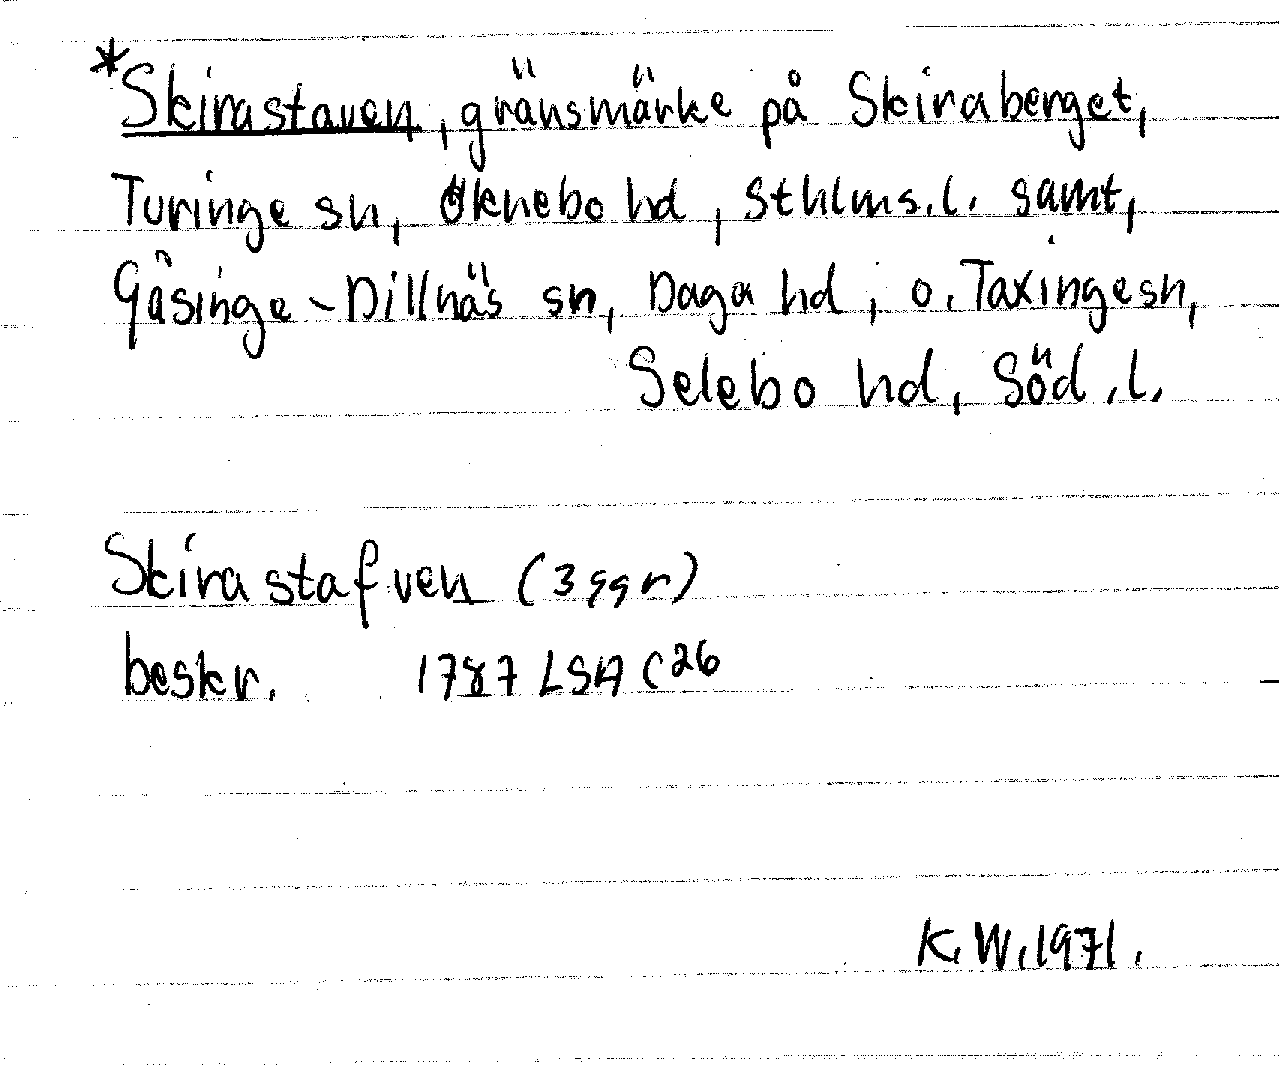 *Skirastaven, gränsmärke på Skiraberget,
Turinge sn, Öknebo hd, Sthlms.l. samt,
Gåsinge-Dillnäs sn, Daga hd, o. Taxinge sn,
Selebo hd, Söd.l.
Skirastafven (3 ggr)
beskr. 1787 LSA C26
K.W.1971.